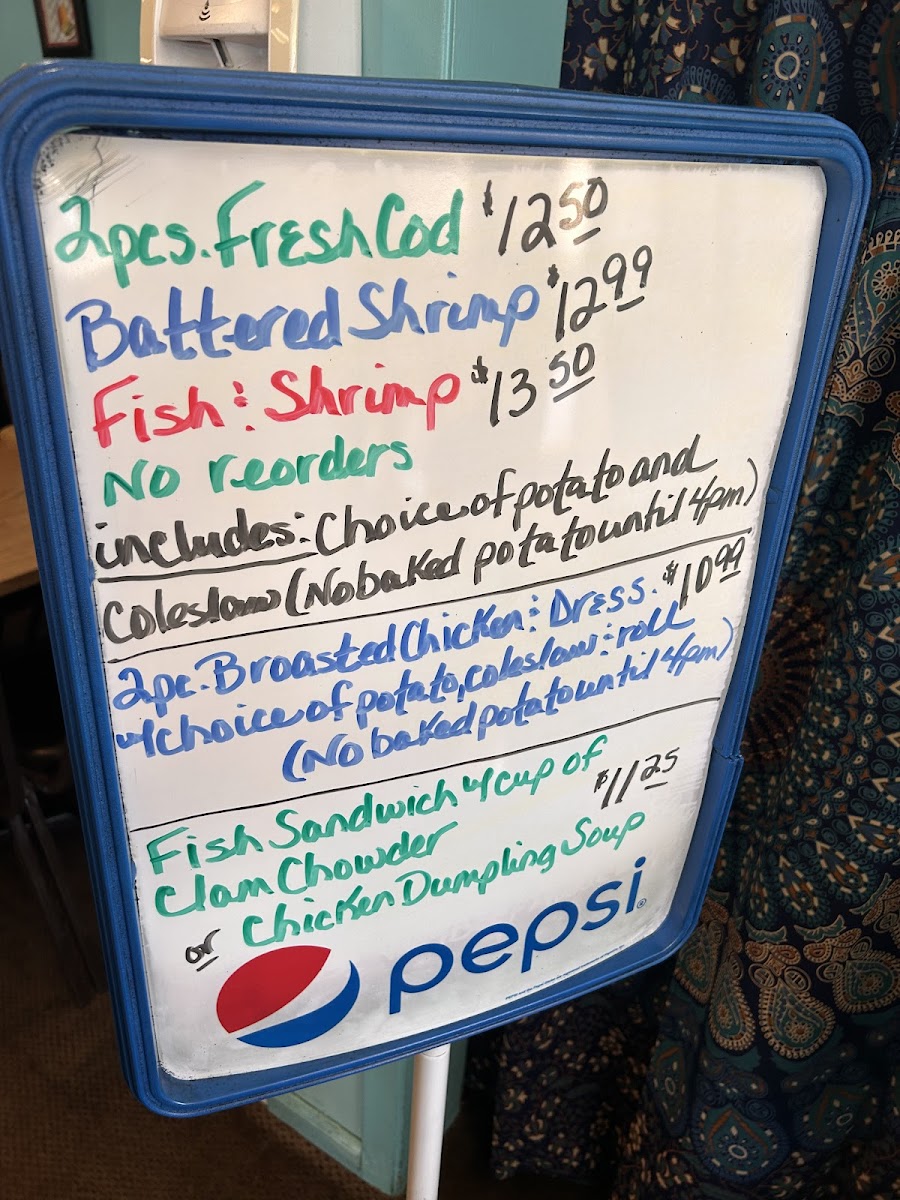 2pcs. Fresh Cod $12.50
Battered Shrimp $12.99
Fish & Shrimp $13.50
No reorders
includes: Choice of potato and
Coleslaw (No baked potato until 4pm)
2pc. Broasted Chicken & Dress. $10.99
w/choice of potato, coleslaw & roll
(No baked potato until 4pm)
Fish Sandwich w/ cup of $11.25
Clam Chowder
or Chicken Dumpling Soup
pepsi®